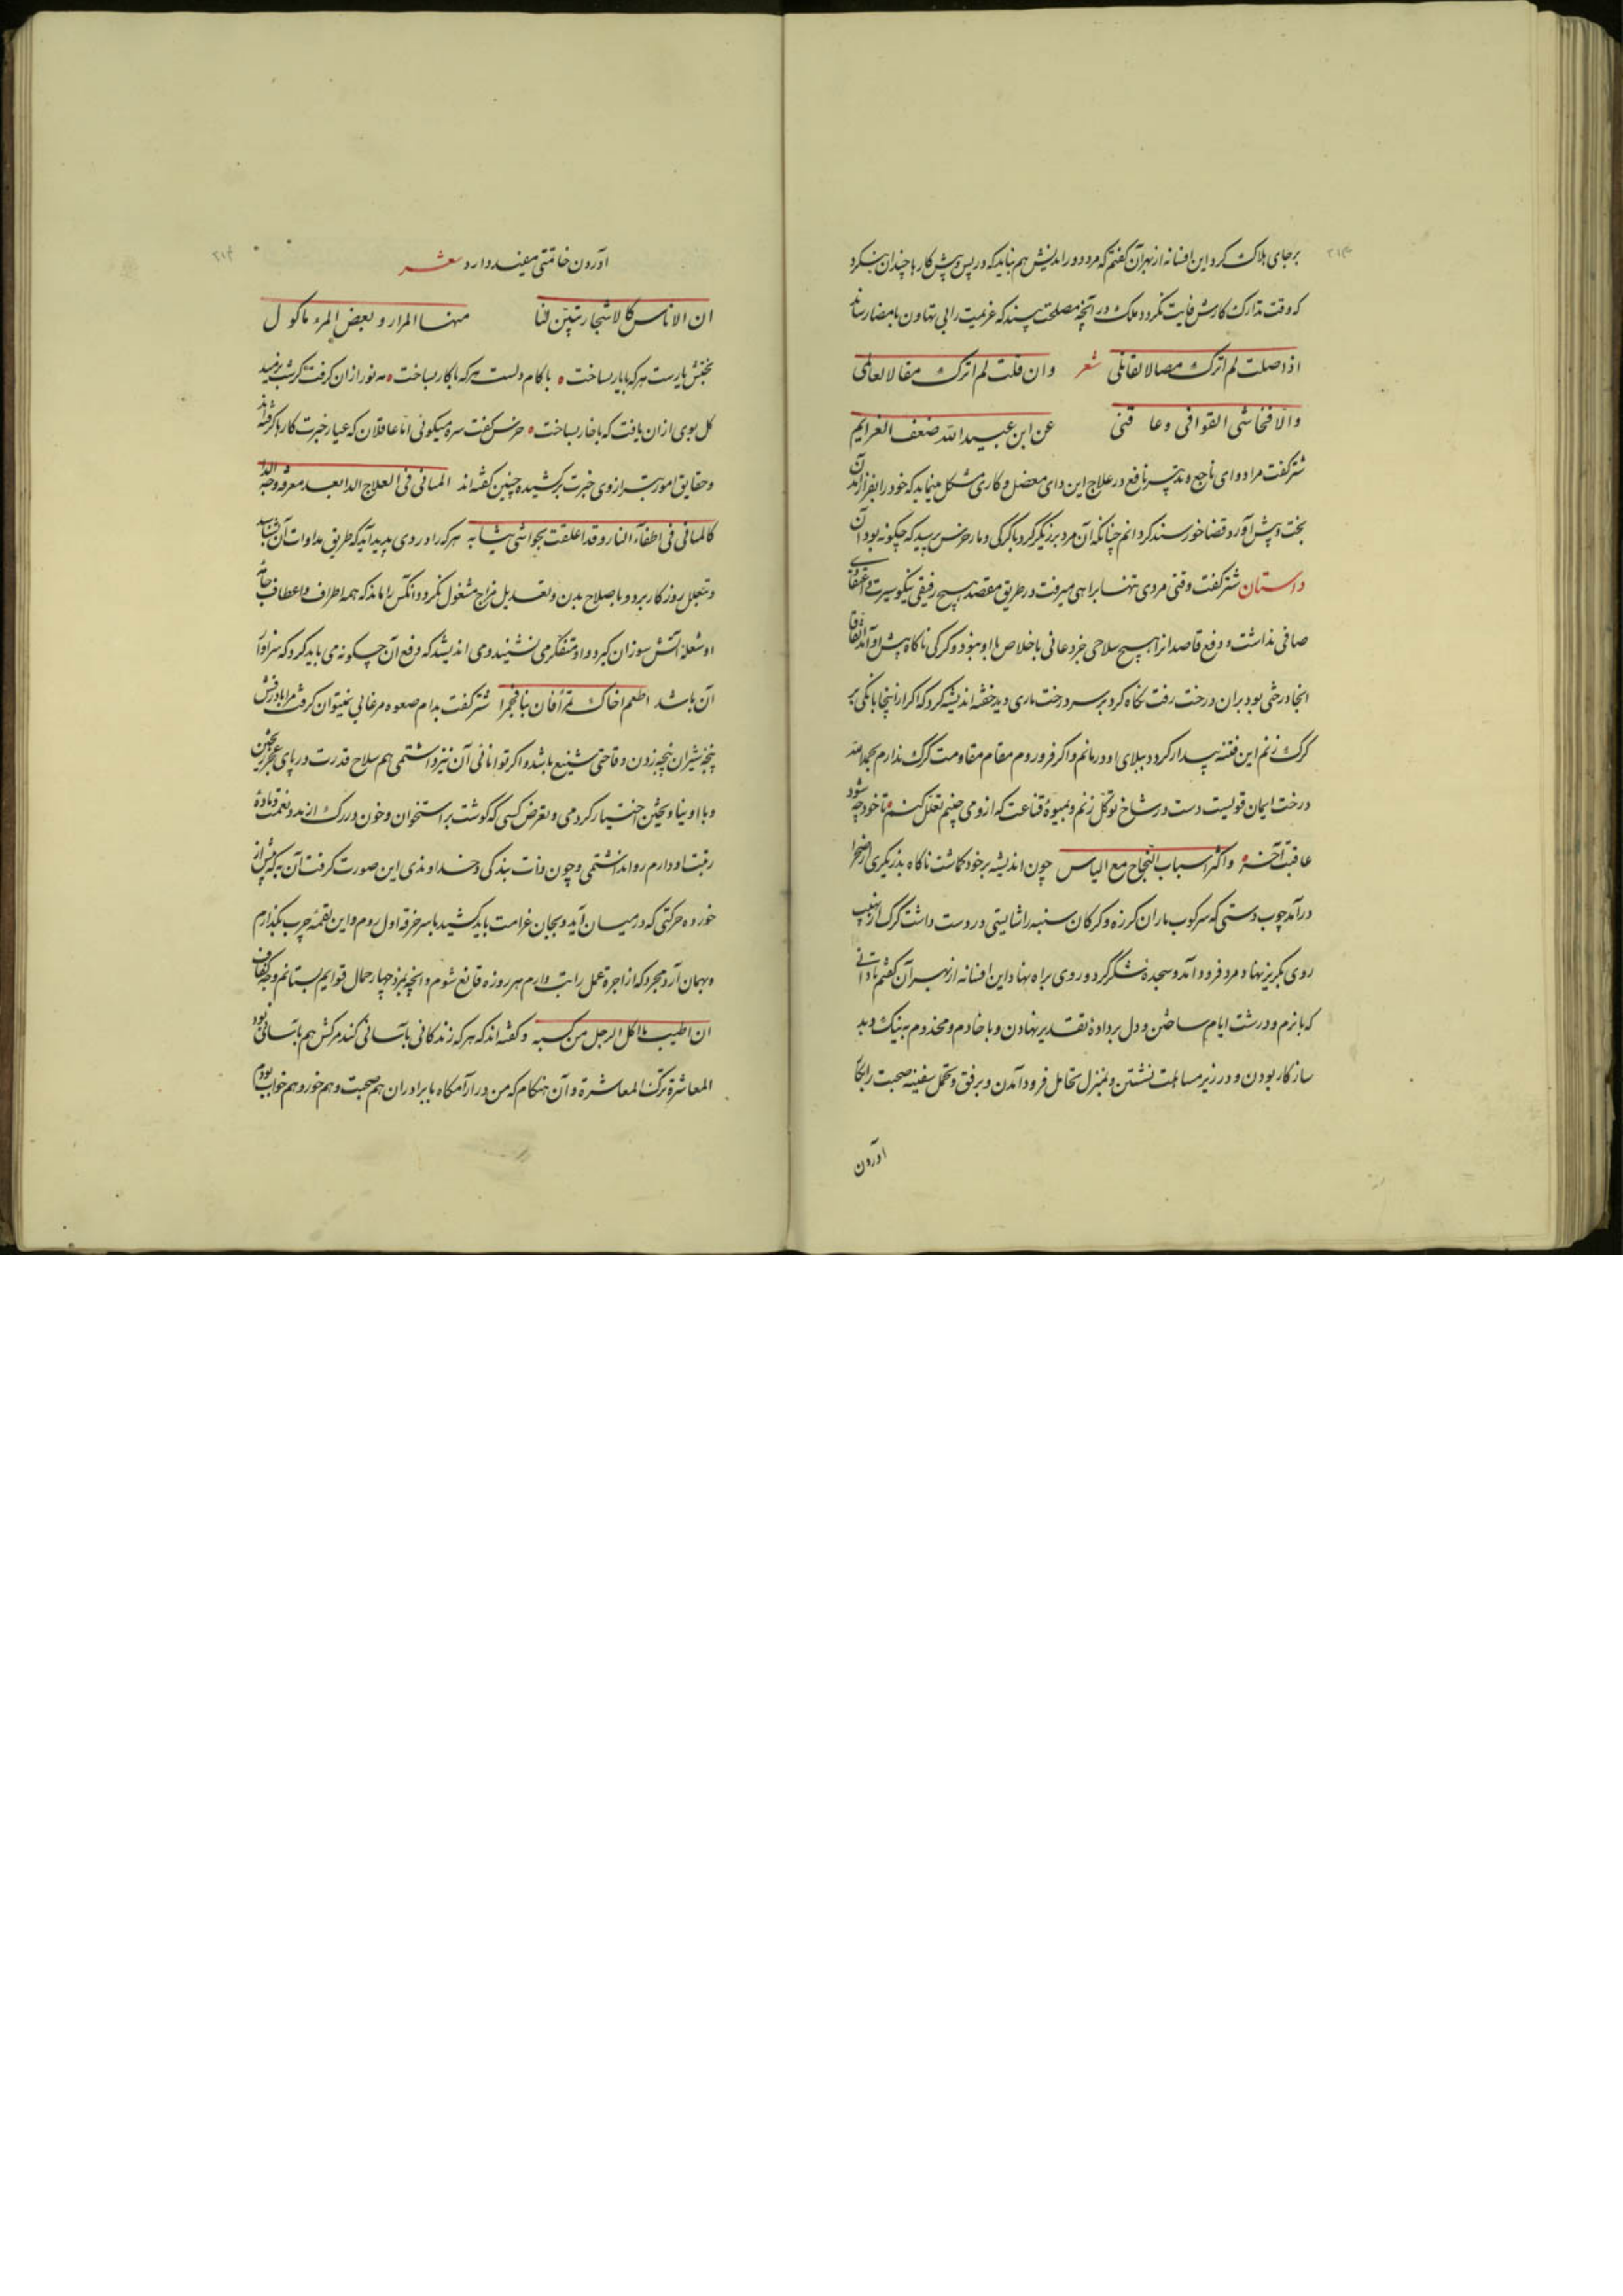 برجای هلاک کرد این افسانه از بهر آن گفتم که مرد دوراندیش هم نباید که در پس و پیش کارها چندان بنگرد
که وقت تدارک کارش فایت گردد و ملک در آنچه مصلحت بیند که عزیمت را بی تهاون بامضا رساند
اذا صلت لم اترک مصالا لقاتلی شعر وان قلت لم اترک مقالا لعالم
والا فخانتنی القوافی و عاقنی عن ابن عبید الله ضعف العزایم
شتر گفت مرا دوای ناجع و تدبیر نافع در علاج این دای معضل و کاری مشکل مینماید که خود را بفراز آمدن
بخت و پیش آورد قضا خورسند گردانم چنانکه آن مرد برزیگر کرد با گرگ و مار خرس پرسید که چگونه بود آن
داستان شتر گفت وقتی مردی تنها براهی میرفت در طریق مقصد هیچ رفیقی نیکو سیرت و اعتقادی
صافی نداشت و دفع قاصد را هیچ سلاحی جز دعائی باخلاص با او نبود و گرگی ناگاه پیش او آمد اتفاقا
انجا درختی بود بران درخت رفت نگاه کرد بر سر درخت ماری دید خفته اندیشه کرد که اگر ازینجا بانگی بر
گرگ زنم این فتنه بیدار گردد ببلای او درمانم و اگر فرو روم مقام مقاومت گرگ ندارم بحمد الله
درخت ایمان قویست دست در شاخ توکل زنم و بمیوه قناعت که ازو می چینم تعلل کنم تا خود چه شود
عاقبت آخر و اکثر اسباب النجاح مع الیاس چون اندیشه بر خود گماشت ناگاه بزریگری از صحرا
درآمد چوب دستی که سرکوب ماران گرزه و گرگان ستنبه را شایستی در دست داشت گرگ از نهیب
روی بگریز نهاد مرد فرود آمد و سجده شکر گرد و روی براه نهاد این افسانه از بهر آن گفتم تا دانی
که با نرم و درشت ایام ساختن و دل بر داده تقدیر نهادن و با خادم و مخدوم به نیک و بد
سازگار بودن و در زیر مسامحت نشتن و بمنزل تحامل فرود آمدن و برفق و تحمل سفینه صحبت را بکنار
آوردن
آوردن خاتمتی مفید دارد شعر
ان الاناس کالاشجار نبتن فنا منها المرار و بعض المرء ماکول
بختش یارست هر که با یار بساخت با کام دلست هر که با کار بساخت مه نور ازان گرفت کز شب نرمید
گل بوی ازان یافت که با خار بساخت خرس گفت سره میگوئی اما عاقلان که عیار خبرت کارها گرفته اند
و حقایق امور بترازوی خبرت برکشیده چنین گفته اند المتانی فی العلاج الداء بعد معرفه وجه الداء
کالمتانی فی اطفاء النار و قد اعلقت بحواشی ثیابه هر که را دردی پدید آید که طریق مداوات آن شناسد
و بتعلل روزگار برد و باصلاح بدن و تعدیل مزاج مشغول نگردد آنکس را ماند که همه اطراف و اعطاف جامه
او شعله آتش سوزان گیرد و او متفکر می نشیند و می اندیشد که دفع آن چگونه می باید کرد که سزاوار
آن باشد اطعم اخاک تمرا فان بنا فجمرا شتر گفت بدام صعوه مرغابی نمیتوان گرفت مرا با درفش
پنجه شیران پنجه زدن وقاحتی شنیع باشد و اگر توانائی آن نیز داشتمی هم سلاح قدرت در پای عجز ریختن
و با او نیاویختن اختیار کردمی و تعرض کسی که گوشت بر استخوان و خون در رگ از مدد نعمت و ماده
رفت او دارم روا نداشتمی و چون ذات بندگی و خداوندی این صورت گرفت آن به که پیش از
خورده حرکتی که درمیان آید و بجان غرامت باید کشید با سر خرقه اول روم و این لقمه چرب بگذارم
و بهمان آرد مجرد که از اجره عمل راتب دارم هر روزه قانع شوم و آنچه بمزد چهار حمال قوایم بستانم وجه کفاف
ان اطیب ما اکل الرجل من کسبه و گفته اند که هر که زندگانی بآسانی کند مرگش هم بآسانی بود
المعاشرة ترک المعاشرة و آن هنگام که من در آرامگاه با برادران هم صحبت و هم خور و هم خواب بودم